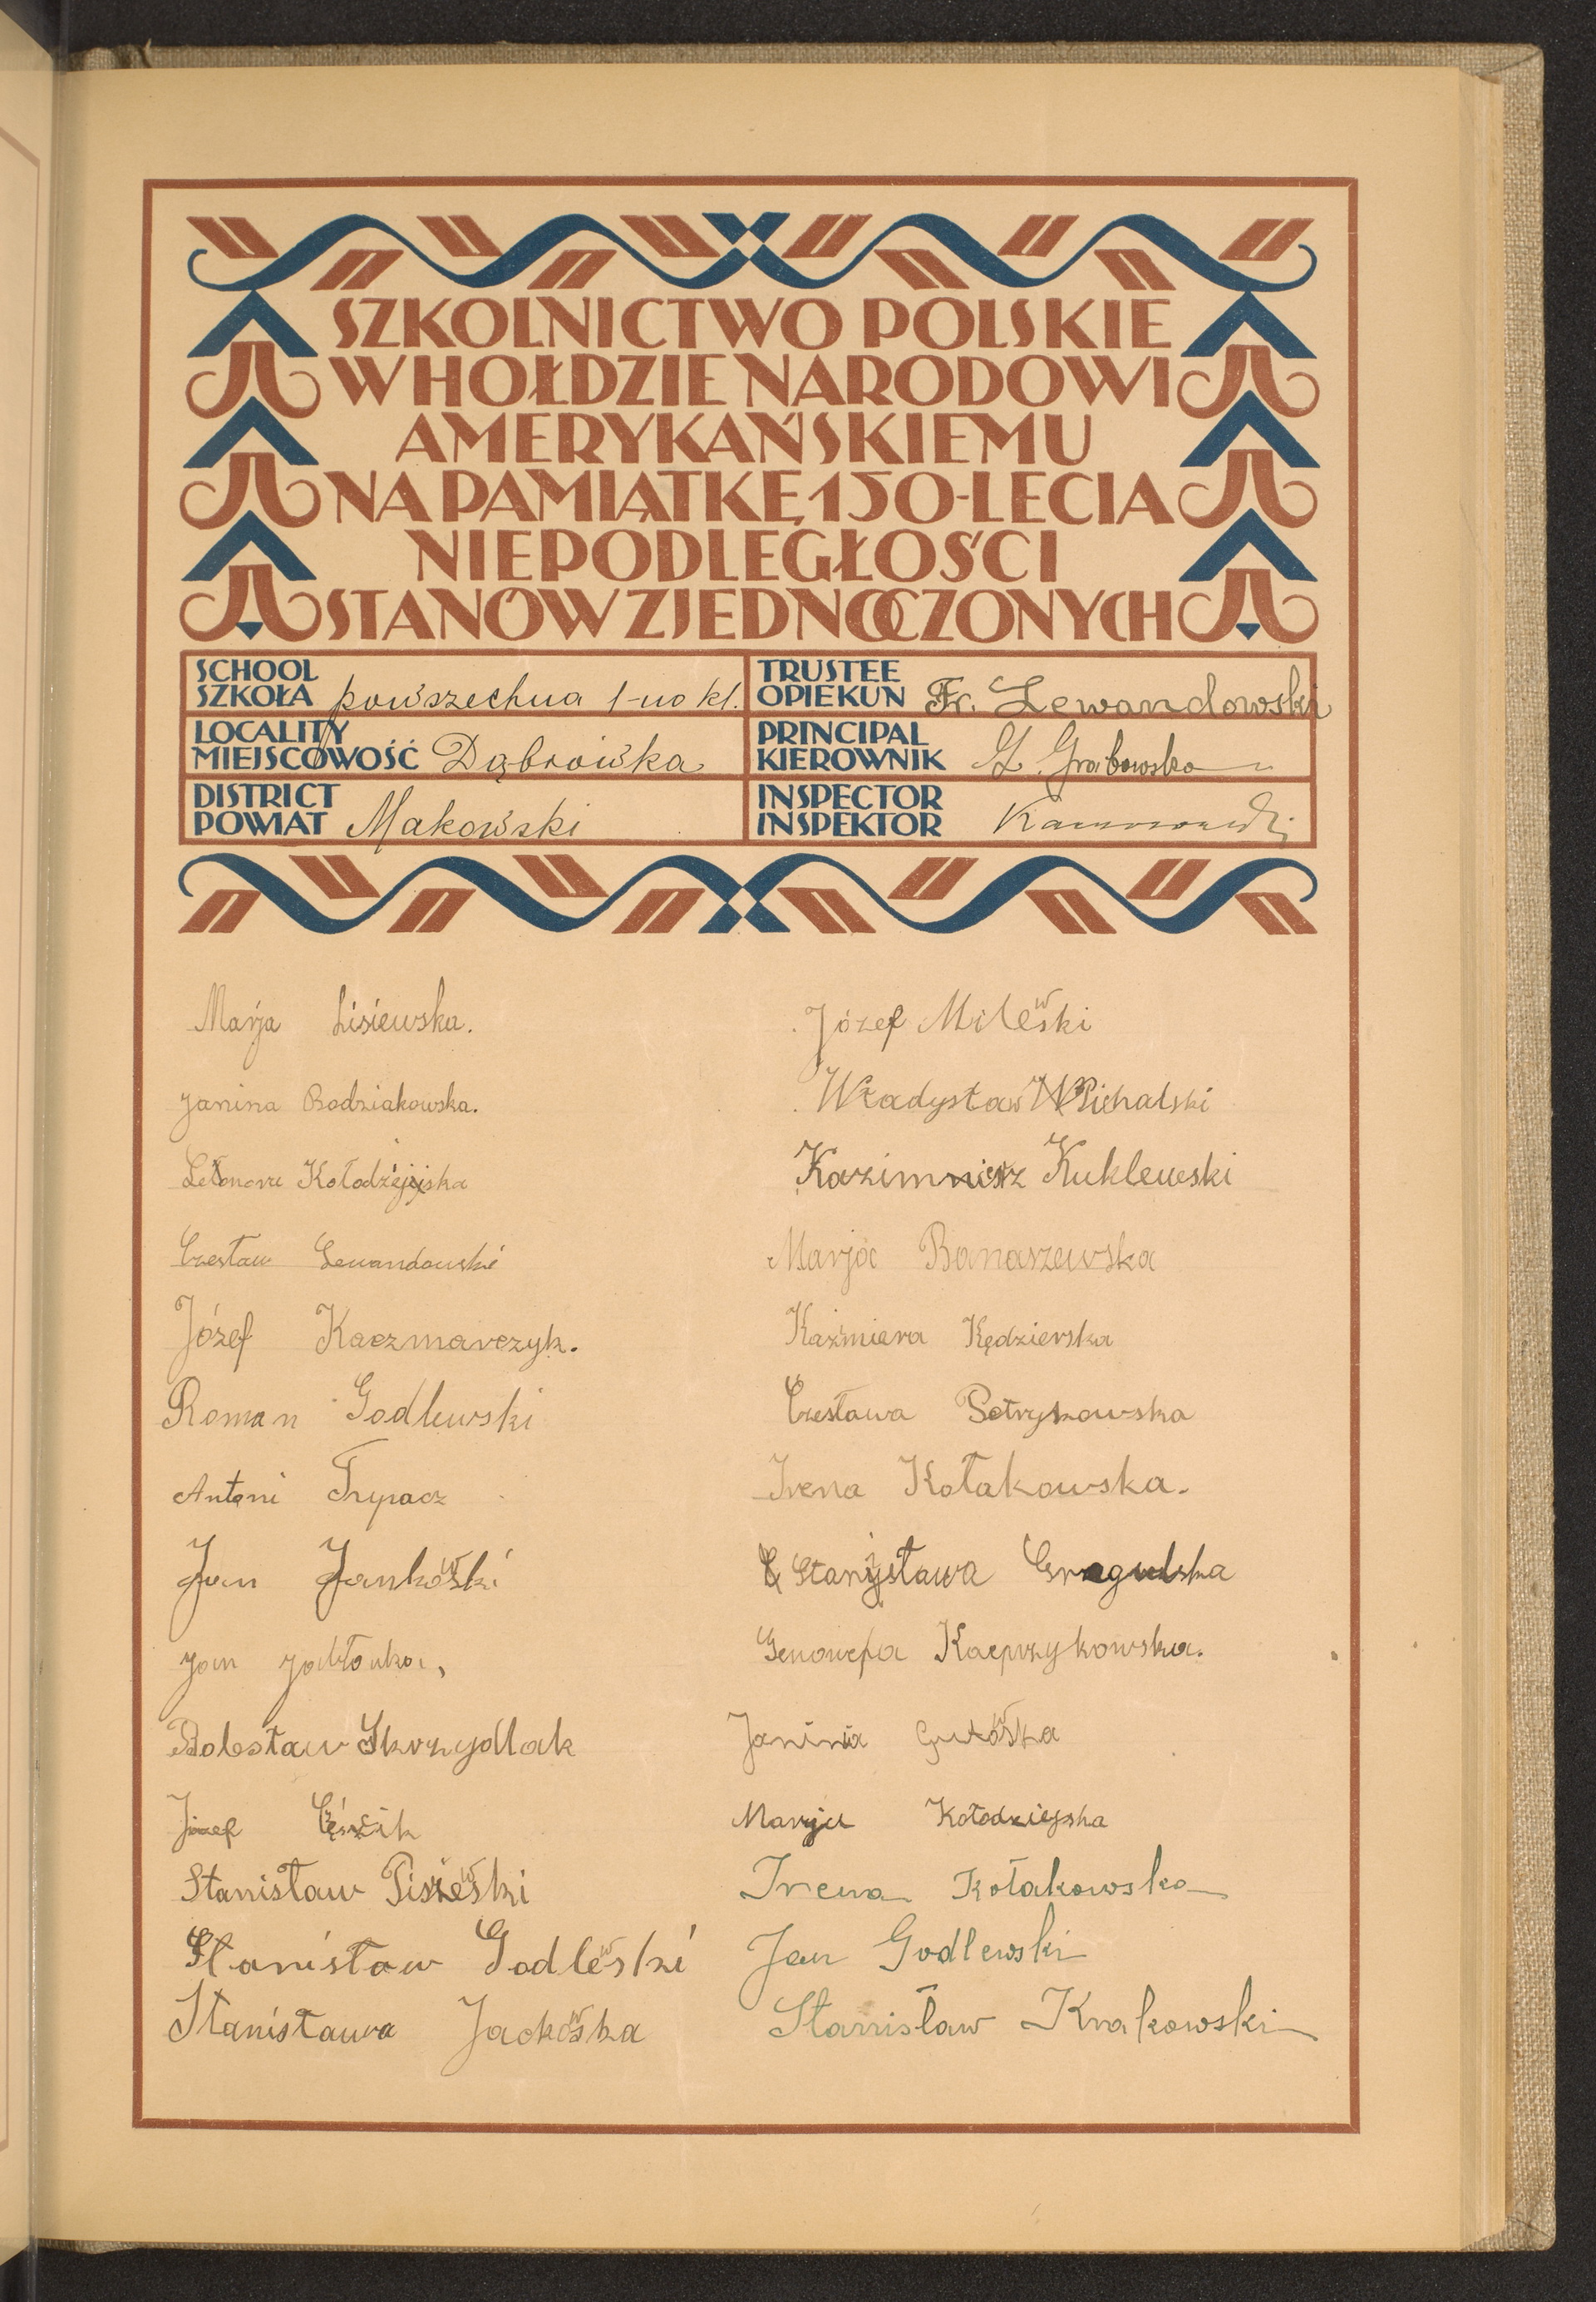 SZKOLNICTWO POLSKIE
W HOŁDZIE NARODOWI
AMERYKAŃSKIEMU
NA PAMIĄTKĘ 150-LECIA
NIEPODLEGŁOŚCI
STANÓW ZJEDNOCZONYCH
SCHOOL
SZKOŁA powszechna 1-no kl.
TRUSTEE
OPIEKUN Fr. Lewandowski
LOCALITY
MIEJSCOWOŚĆ Dąbrówka
PRINCIPAL
KIEROWNIK Grabowska
DISTRICT
POWIAT Makowski
INSPECTOR
INSPEKTOR
Marja Lisiewska.
Janina Bodziakowska.
Kołodziejska
Czesław Lewandowski
Józef Kaczmarczyk.
Roman Godlewski
Antoni Trypacz
Jan Jankowski
Jan Jabłonka,
Bolesław Skrzydlak
Józef
Stanisław Pisiewski
Stanisław Godlewski
Stanisława Jackowska
Józef Milewski
Władysław Michalski
Kazimierz Kuklewski
Marja Banaszewska
Kaźmiera Kędzierska
Czesława Petrykowska
Irena Kołakowska.
Stanisława Gregulska
Genowefa Kacprzykowska.
Janina Gutowska
Marja Kołodziejska
Irena Kołakowska
Jan Godlewski
Stanisław Krakowski